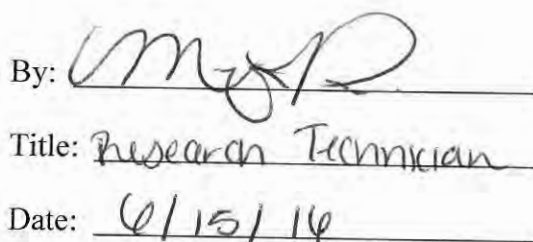 By:
Title: Research Technician
Date: 6/15/16